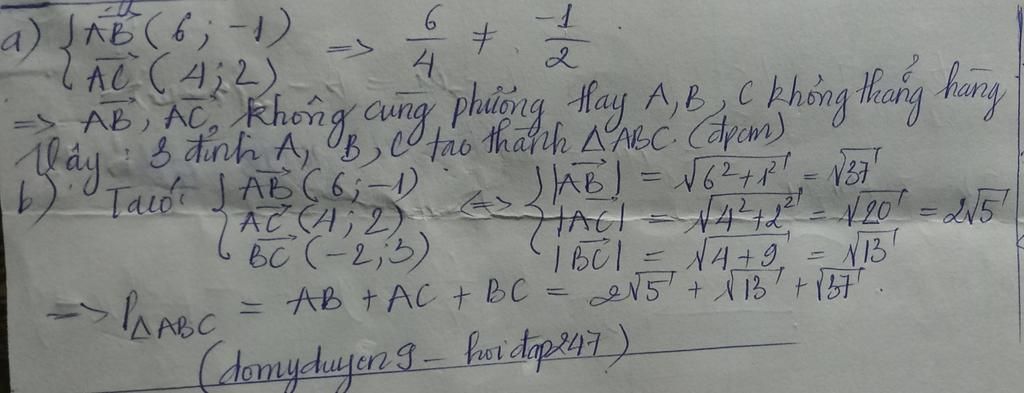 a) { AB→ (6; -1) => 6/4 ≠ -1/2
AC→ (4; 2)
=> AB→, AC→ không cùng phương Hay A, B, C không thẳng hàng
Vậy: 3 đỉnh A, B, C tạo thành △ABC. (đpcm)
b) Ta có: { AB→ (6; -1) <=> { |AB→| = √(6² + 1²) = √37
AC→ (4; 2) |AC→| = √(4² + 2²) = √20 = 2√5
BC→ (-2; 3) |BC→| = √(4 + 9) = √13
=> P△ABC = AB + AC + BC = 2√5 + √13 + √37.
(domyduyen9 - hoidap247)